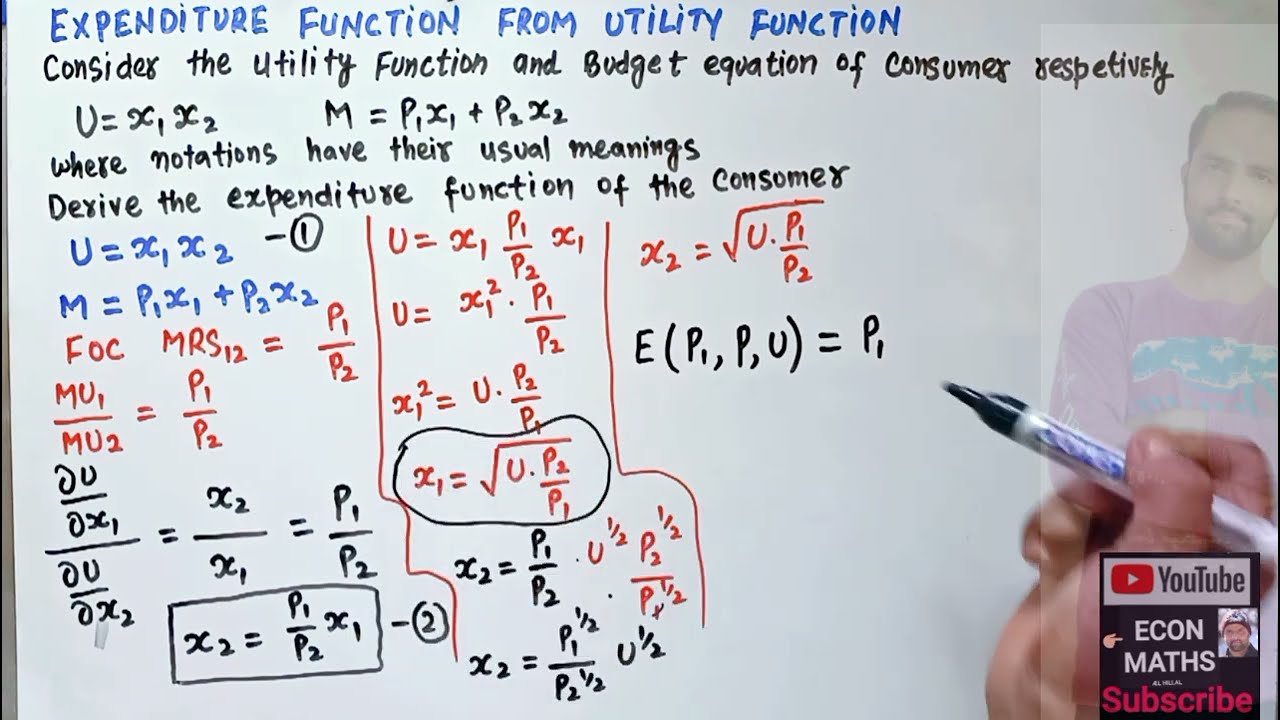 EXPENDITURE FUNCTION FROM UTILITY FUNCTION
Consider the Utility Function and Budget equation of Consumer respetively
U = x₁ x₂ M = P₁x₁ + P₂x₂
where notations have their usual meanings
Derive the expenditure function of the Consomer
U = x₁ x₂ —①
M = P₁x₁ + P₂x₂
FOC MRS₁₂ = P₁/P₂
MU₁/MU₂ = P₁/P₂
(∂U/∂x₁)/(∂U/∂x₂) = x₂/x₁ = P₁/P₂
x₂ = P₁/P₂ x₁ —②
U = x₁ P₁/P₂ x₁
U = x₁² · P₁/P₂
x₁² = U · P₂/P₁
x₁ = √(U · P₂/P₁)
x₂ = P₁/P₂ · U^1/2 · P₂^1/2/P₁^1/2
x₂ = P₁^1/2/P₂^1/2 U^1/2
x₂ = √(U · P₁/P₂)
E(P₁, P, U) = P₁
YouTube
ECON
MATHS
ÆL HILLAL
Subscribe